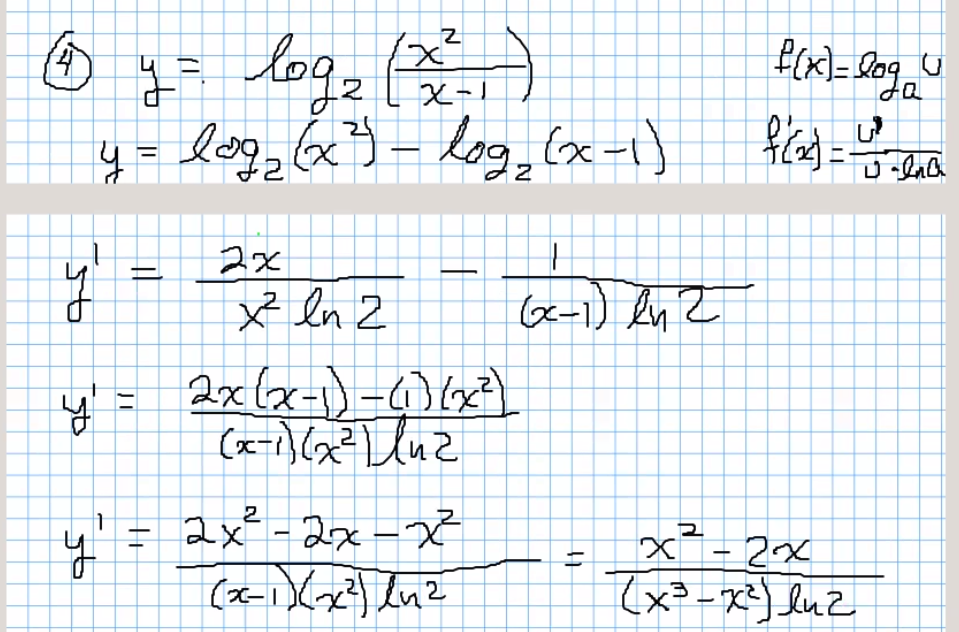 ④ y = log₂(x²/(x-1)) f(x)=logₐu
y = log₂(x²) - log₂(x-1) f'(x)=u'/(u·lna)
y' = 2x/(x² ln 2) - 1/((x-1) ln 2)
y' = (2x(x-1)-(1)(x²))/((x-1)(x²) ln2)
y' = (2x²-2x-x²)/((x-1)(x²) ln2) = (x²-2x)/((x³-x²) ln2)